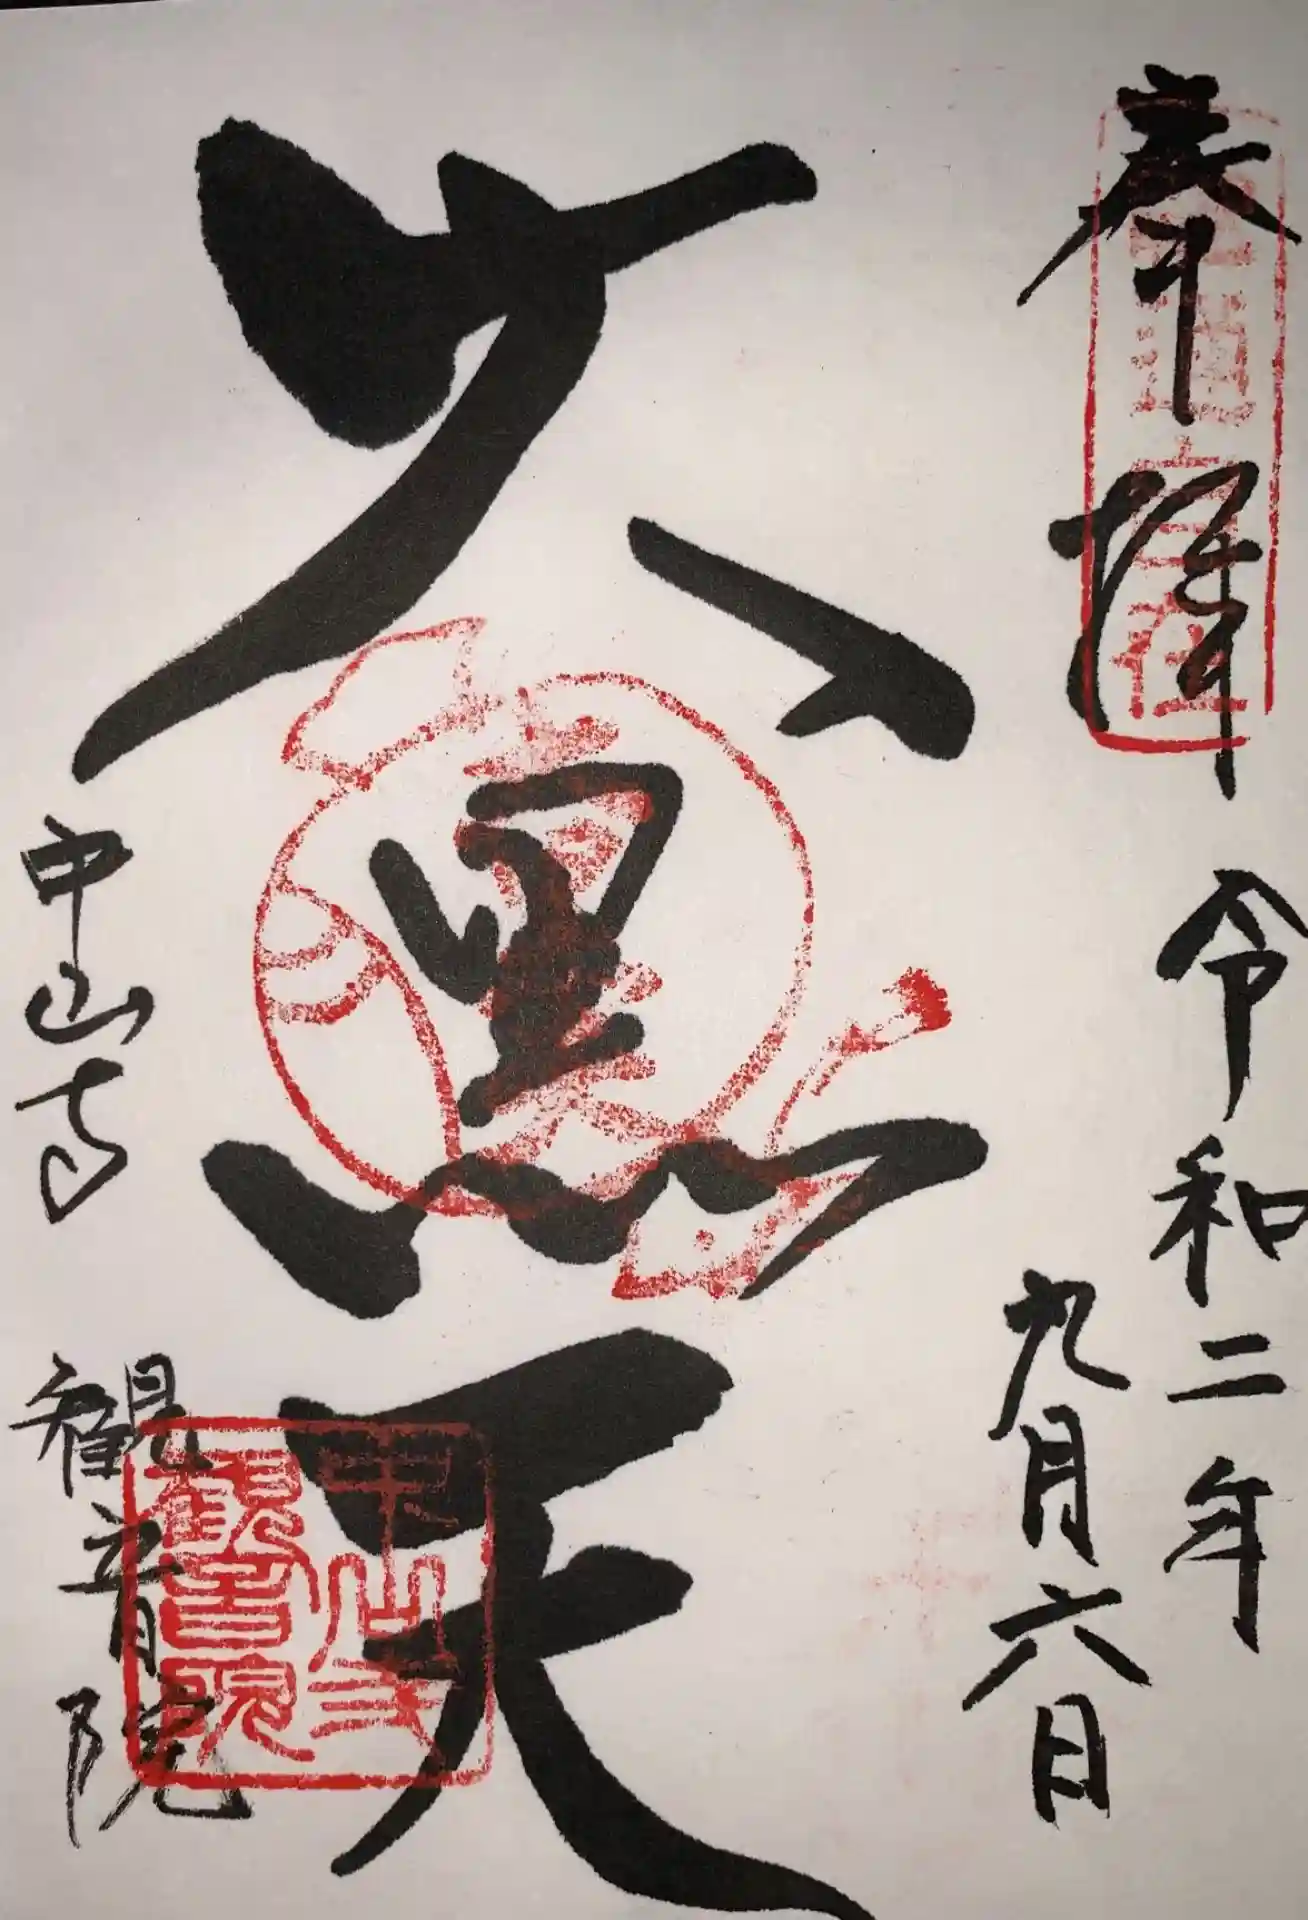 奉拝 令和二年
九月六日
大黒天
中山寺 観音院
中山寺
観音院